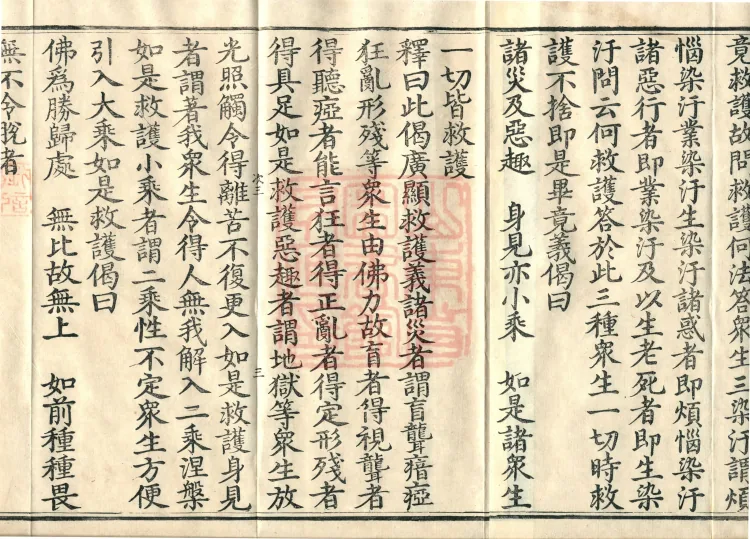 竟救護故問救護何法答衆生三染汙謂煩
惱染汙業染汙生染汙諸惑者即煩惱染汙
諸惡行者即業染汙及以生老死者即生染
汙問云何救護答於此三種衆生一切時救
護不捨即是畢竟義偈曰
諸災及惡趣　身見亦小乘　如是諸衆生
一切皆救護
釋曰此偈廣顯救護義諸災者謂盲聾瘖瘂
狂亂形殘等衆生由佛力故盲者得視聾者
得聽瘂者能言狂者得正亂者得定形殘者
得具足如是救護惡趣者謂地獄等衆生放
三
光照觸令得離苦不復更入如是救護身見
者謂著我衆生令得人無我解入二乘涅槃
如是救護小乘者謂二乘性不定衆生方便
引入大乘如是救護偈曰
佛爲勝歸處　無比故無上　如前種種畏
無不令脫者